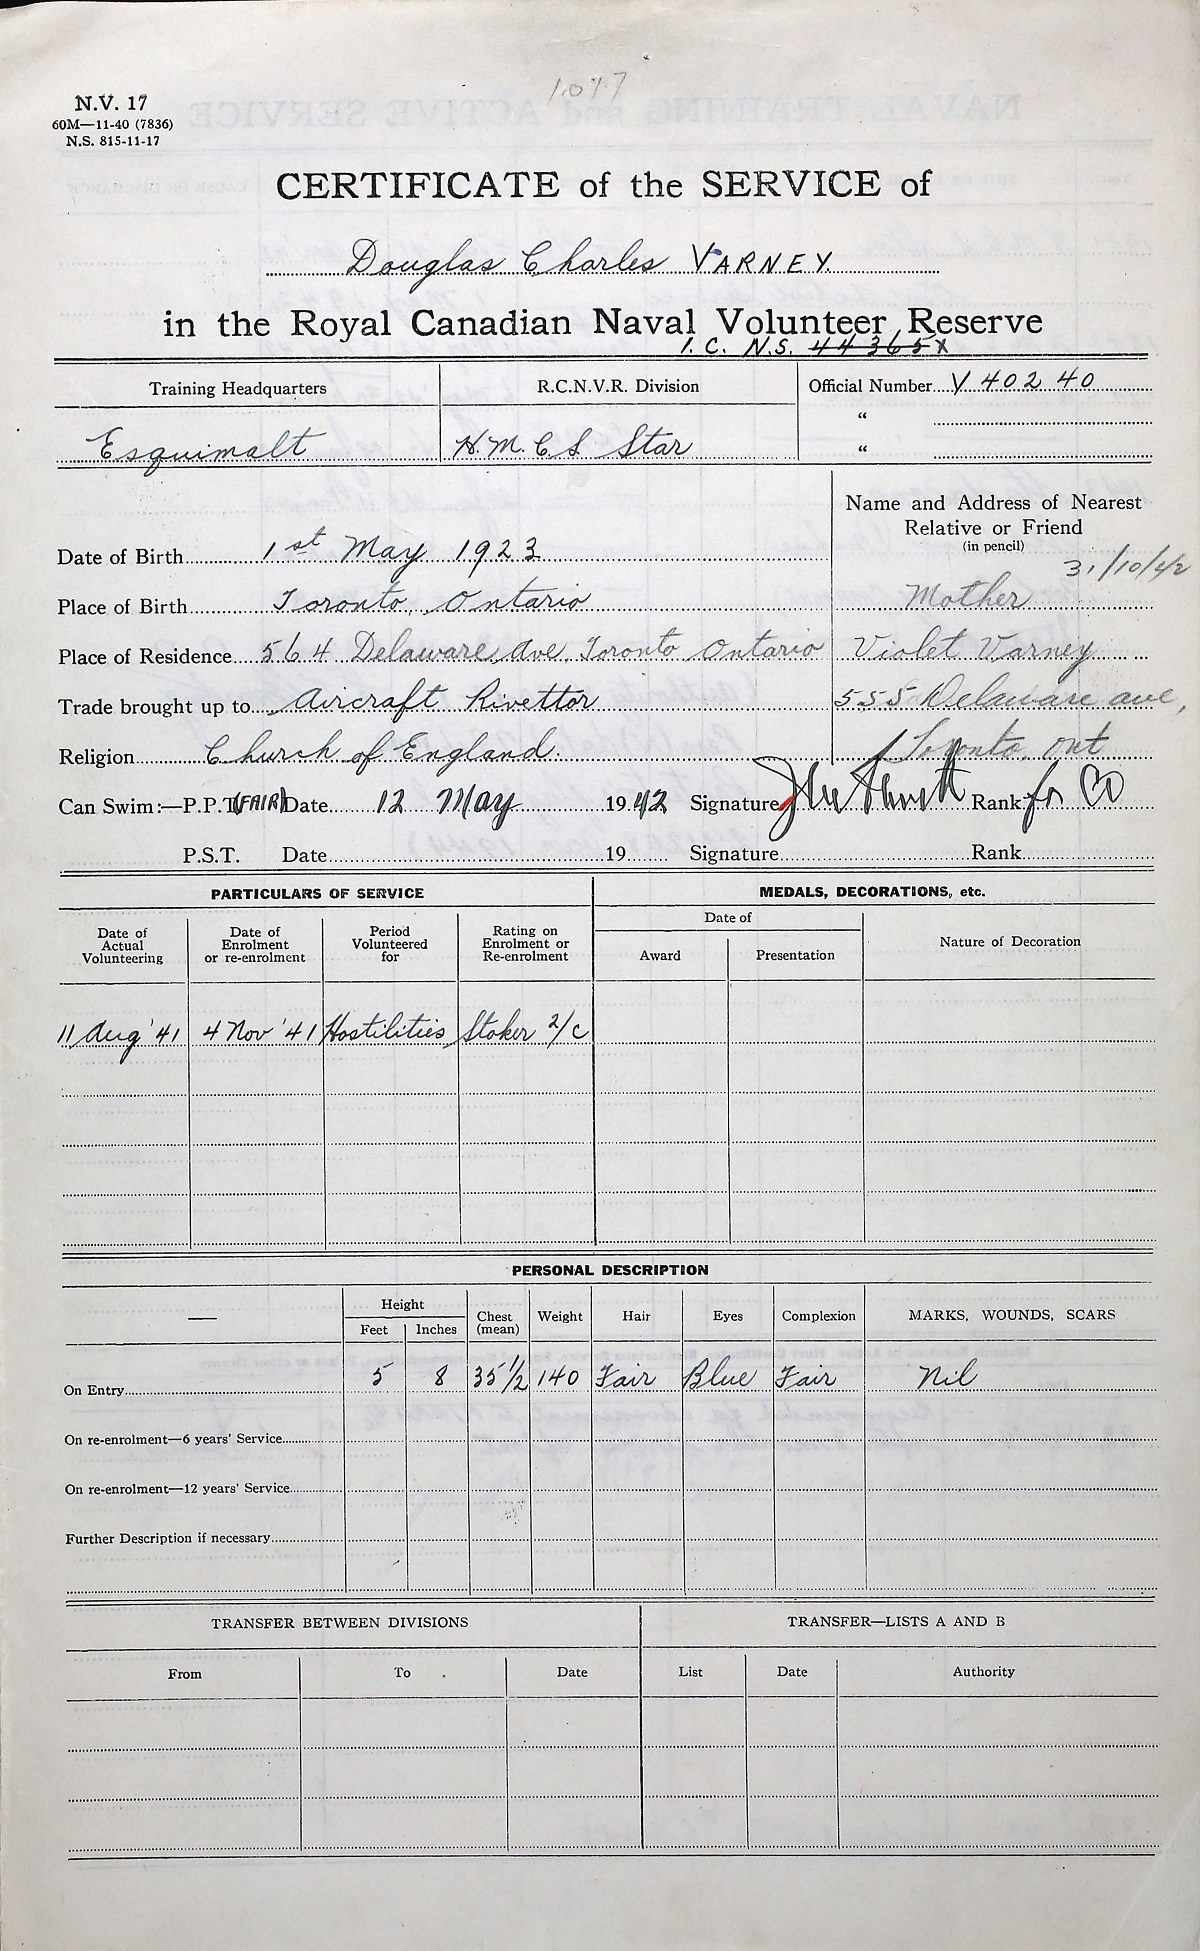 1077
N.V. 17
60M—11-40 (7836)
N.S. 815-11-17
CERTIFICATE of the SERVICE of
Douglas Charles VARNEY
in the Royal Canadian Naval Volunteer Reserve
I. C. N.S. 44365X
Training Headquarters R.C.N.V.R. Division Official Number V 40240
“
Esquimalt H.M.C.S. Star “
Name and Address of Nearest
Relative or Friend
(in pencil)
31/10/42
Date of Birth 1st May 1923
Place of Birth Toronto, Ontario Mother
Place of Residence 564 Delaware Ave Toronto Ontario Violet Varney
Trade brought up to Aircraft Rivettor 555 Delaware ave,
Religion Church of England. Toronto, Ont
Can Swim:—P.P.T. (FAIR) Date 12 May 1942 Signature Rank for CO
P.S.T. Date 19 Signature Rank
PARTICULARS OF SERVICE MEDALS, DECORATIONS, etc.
Date of Actual Volunteering Date of Enrolment or re-enrolment Period Volunteered for Rating on Enrolment or Re-enrolment Date of Award Presentation Nature of Decoration
11 Aug '41 4 Nov '41 Hostilities Stoker 2/c
PERSONAL DESCRIPTION
— Height Feet Inches Chest (mean) Weight Hair Eyes Complexion MARKS, WOUNDS, SCARS
On Entry 5 8 35 1/2 140 Fair Blue Fair Nil
On re-enrolment—6 years' Service
On re-enrolment—12 years' Service
Further Description if necessary
TRANSFER BETWEEN DIVISIONS TRANSFER—LISTS A AND B
From To Date List Date Authority